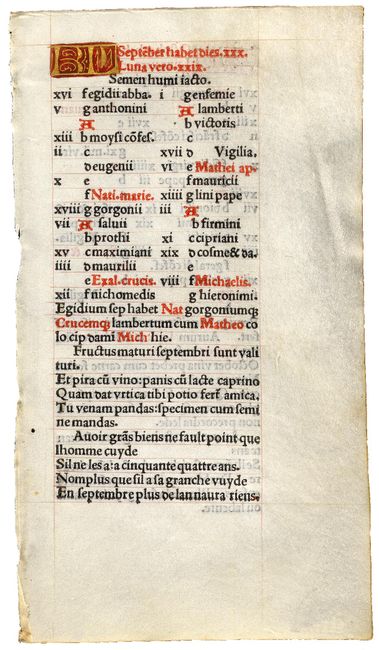 KL Septẽber habet dies .xxx.
Luna vero .xxix.
Semen humi iacto.
xvi f egidii abba. i g enfemie
v g anthonini A lamberti
A b victoris
xiii b moysi cõfes. c
ii c xvii d Vigilia.
d eugenii vi e Mathei ap
x e f mauricii
f Nati. marie. xiiii g lini pape
xviii g gorgonii iii A
vii A saluii b firmini
b prothi xi c cipriani
xv c maximiani xix d cosme & da.
iiii d maurilii e
e Exal. crucis. viii f Michaelis.
xii f nichomedis g hieronimi.
Egidium sep habet Nat gorgoniumq;
Crucemq; lambertum cum Matheo co
lo cip dami Mich hie.
Fructus maturi septembri sunt vali
turi.
Et pira cũ vino: panis cũ lacte caprino
Quam dat vrtica tibi potio fert̃ amica.
Tu venam pandas: specimen cum semi
ne mandas.
Auoir grãs biens ne fault point que
lhomme cuyde
Sil ne les a: a cinquante quattre ans.
Nomplus que sil a sa granche vuyde
En septembre plus de lan naura riens.